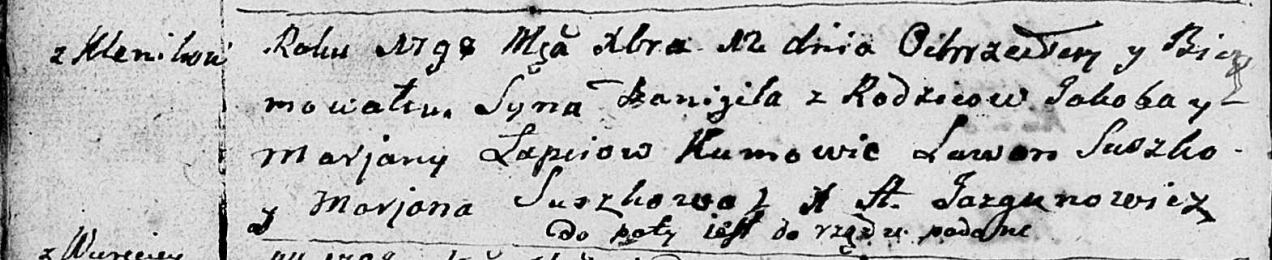 z Klenikow Roku 1798 Mcā Xbra 12 dnia Ochrzciłem y Bierz
mowałem Syna Daniǵiła z Rodziców Jakoba y
Marjany Łapciow Kumowie Lawon Suszko
y Marjana Suszkowa X A. Jazgunowicz
do poty iest do rządu podane
z